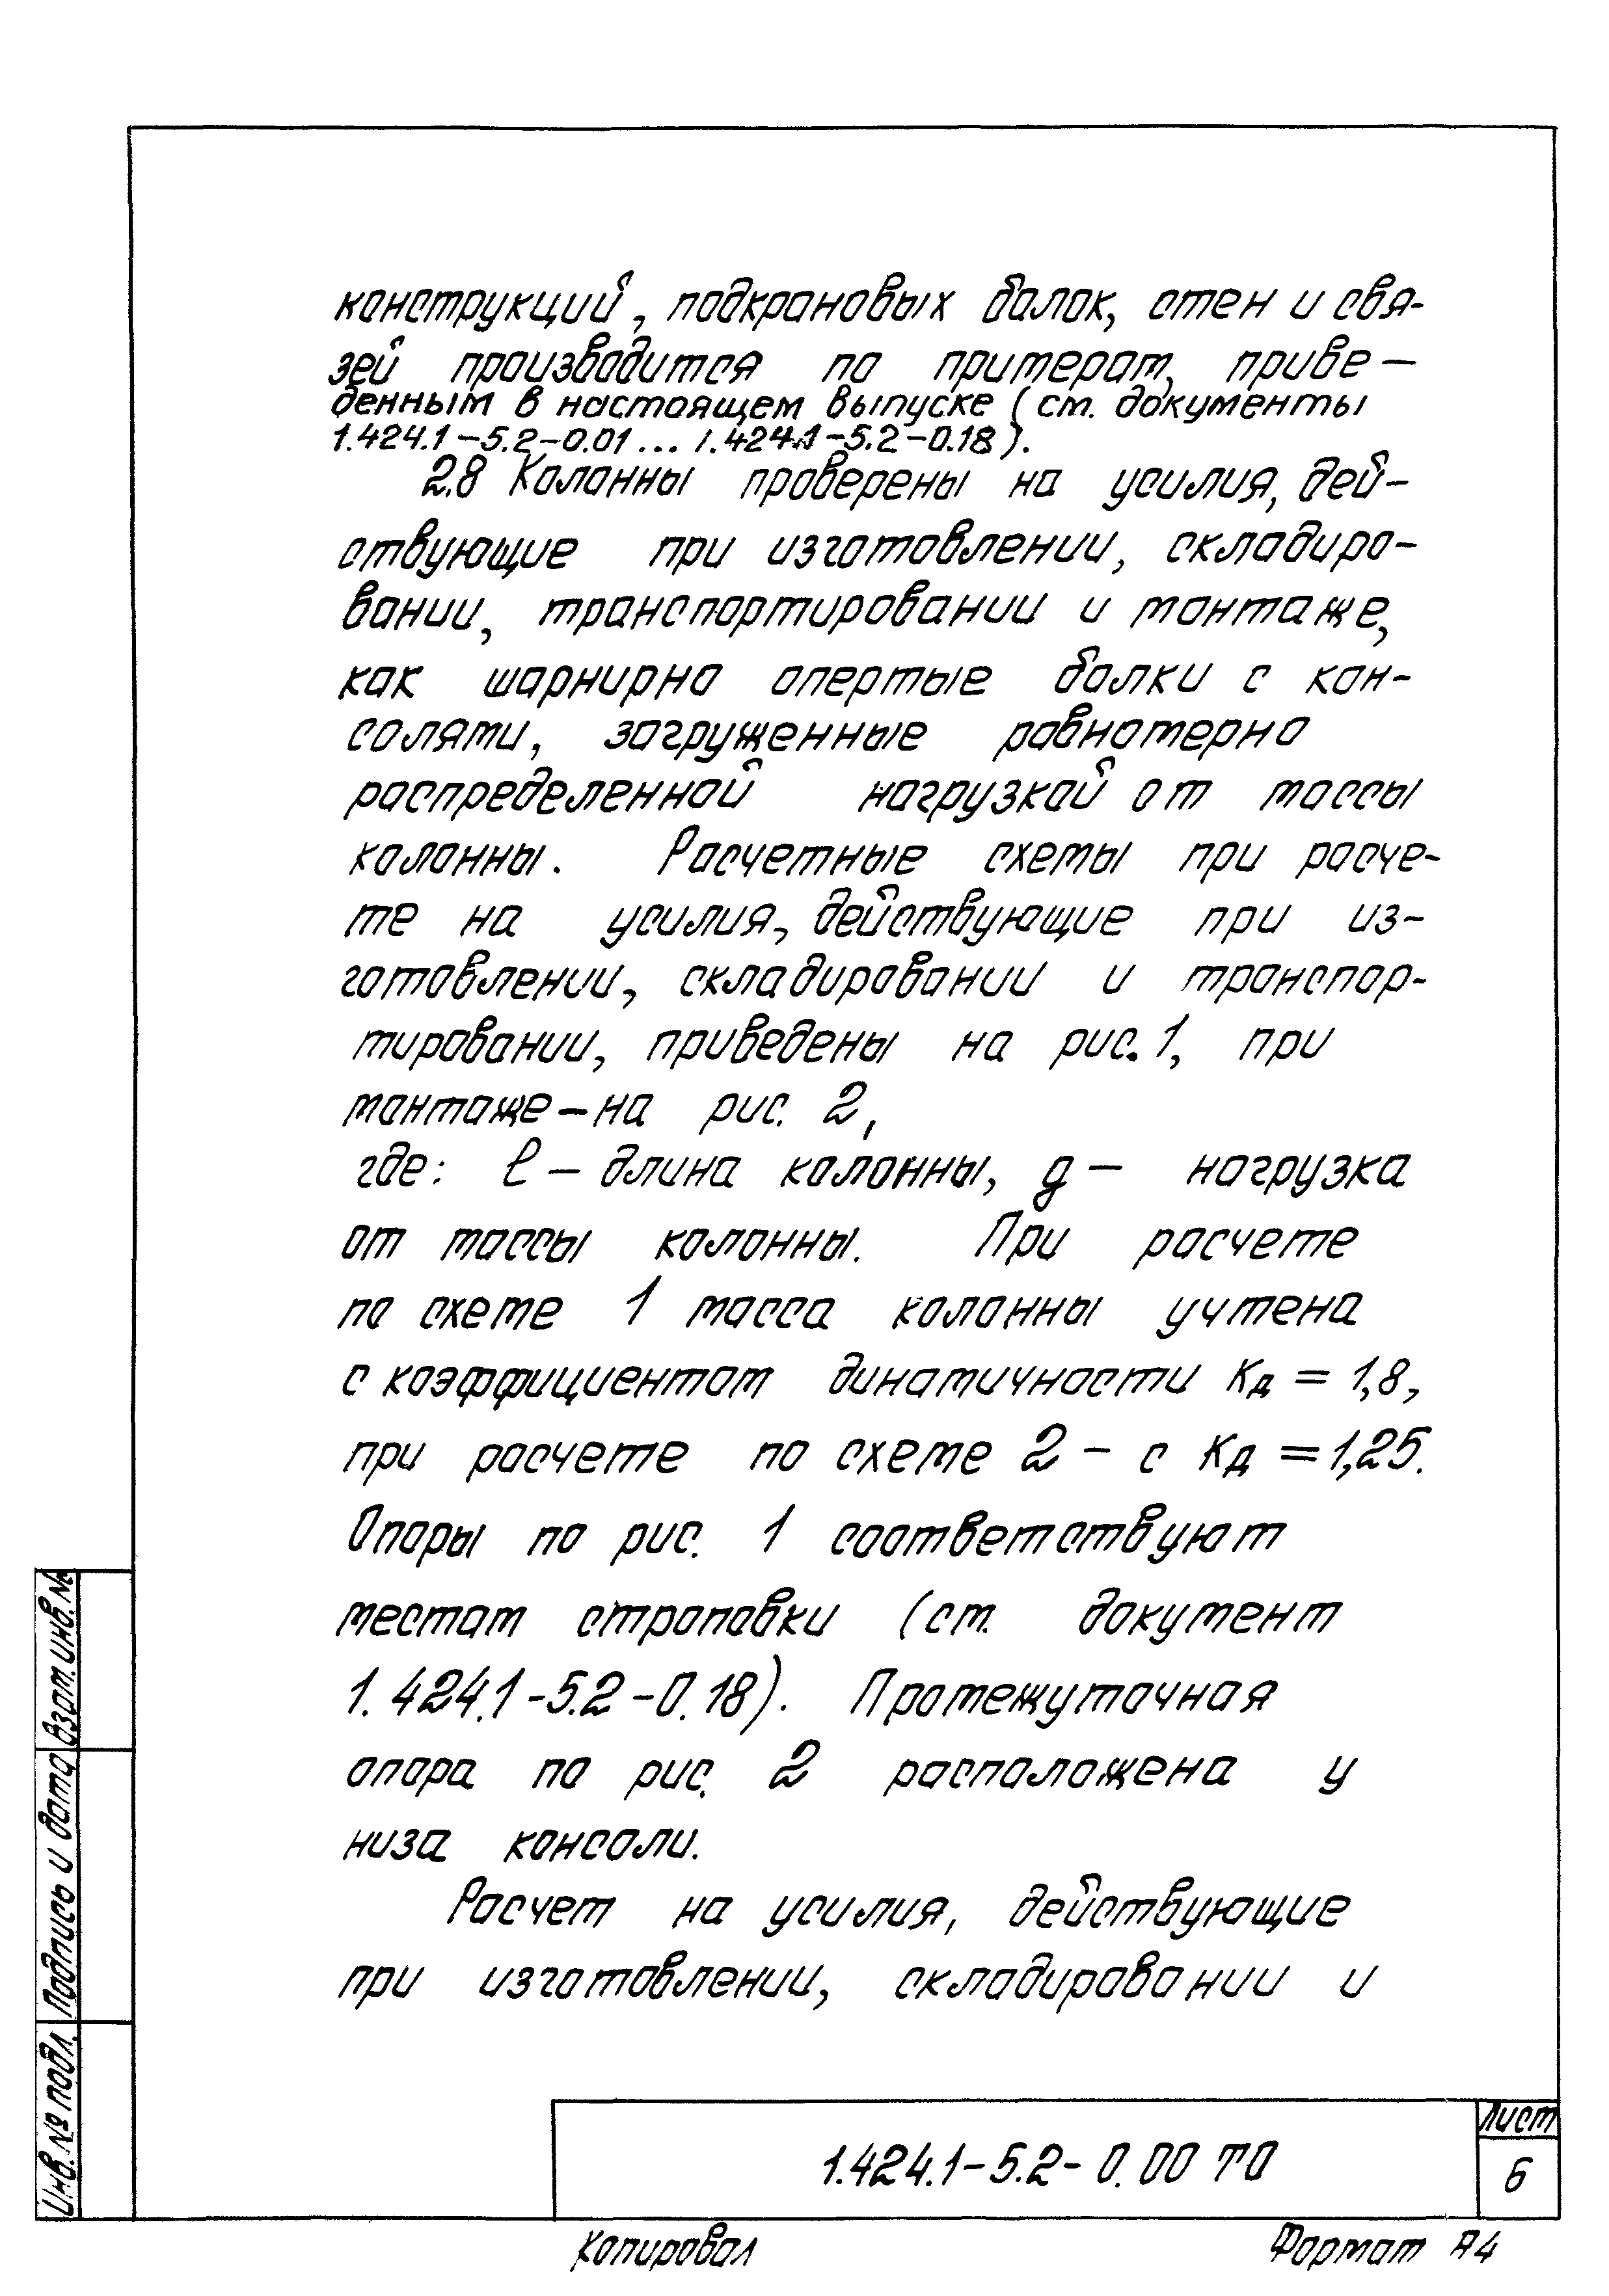 конструкций, подкрановых балок, стен и свя-
зей производится по примерам, приве-
денным в настоящем выпуске (см. документы
1.424.1-5.2-0.01 ... 1.424.1-5.2-0.18).
2.8 Колонны проверены на усилия, дей-
ствующие при изготовлении, складиро-
вании, транспортировании и монтаже,
как шарнирно опертые балки с кон-
солями, загруженные равномерно
распределенной нагрузкой от массы
колонны. Расчетные схемы при расче-
те на усилия, действующие при из-
готовлении, складировании и транспор-
тировании, приведены на рис. 1, при
монтаже - на рис. 2,
где: ℓ - длина колонны, g - нагрузка
от массы колонны. При расчете
по схеме 1 масса колонны учтена
с коэффициентом динамичности Кд = 1,8,
при расчете по схеме 2 - с Кд = 1,25.
Опоры по рис. 1 соответствуют
местам строповки (см. документ
1.424.1-5.2-0.18). Промежуточная
опора по рис. 2 расположена у
низа консоли.
Расчет на усилия, действующие
при изготовлении, складировании и
Инв. № подл. Подпись и дата Взам. инв. №
1.424.1-5.2-0.00 ТО
Лист
6
Копировал
Формат А4